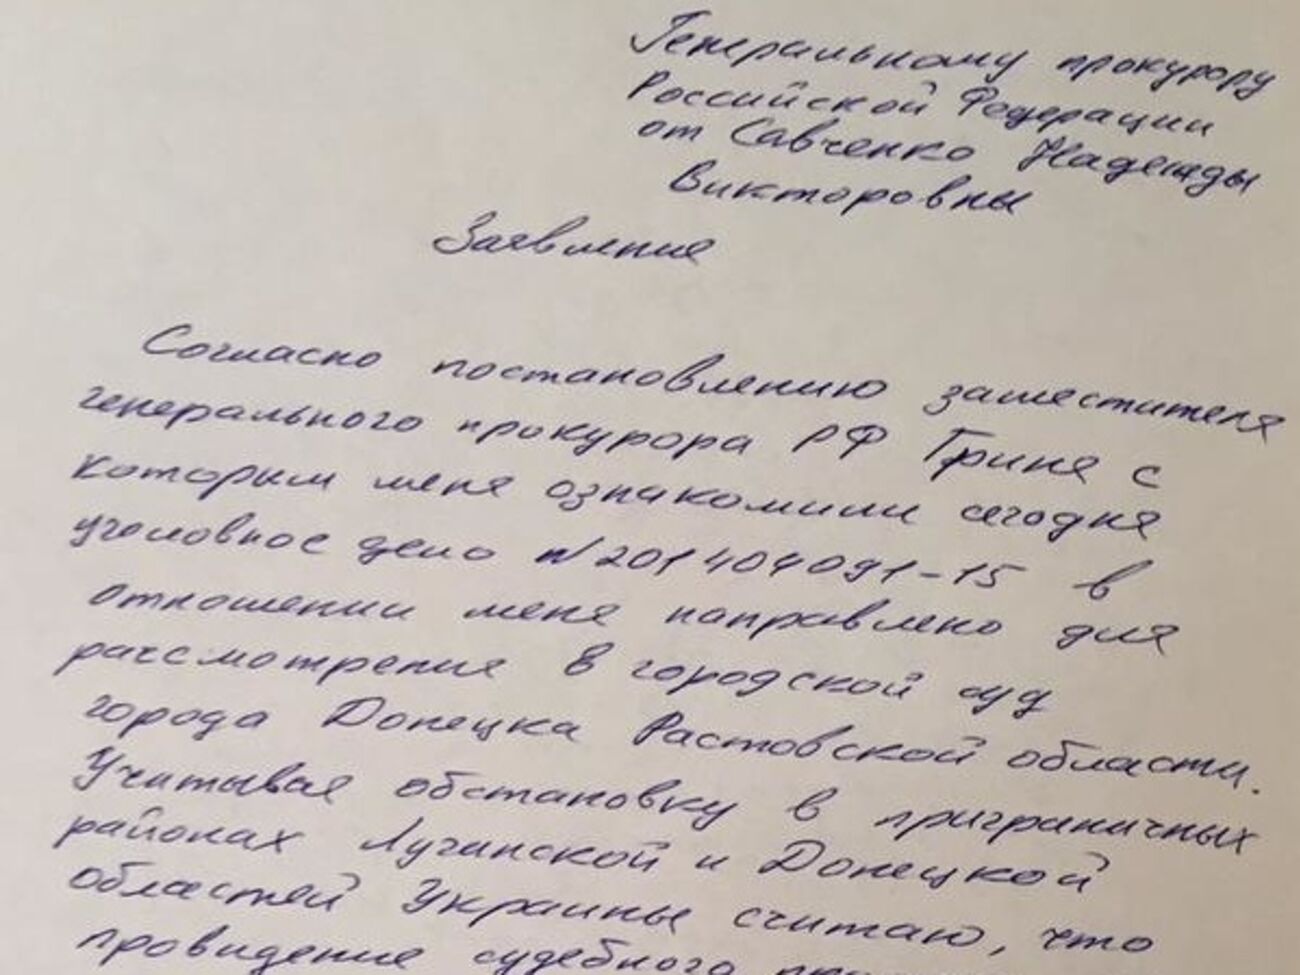 Генеральному прокурору
Российской Федерации
от Савченко Надежды
Викторовны
Заявление
Согласно постановлению заместителя
генерального прокурора РФ Гриня с
которим меня ознакомили сегодня
уголовное дело №201404091-15 в
отношении меня направлено для
рассмотрения в городской суд
города Донецка Растовской области.
Учитывая обстановку в приграничных
районах Луганской и Донецкой
областей Украины считаю, что
провидение судебного